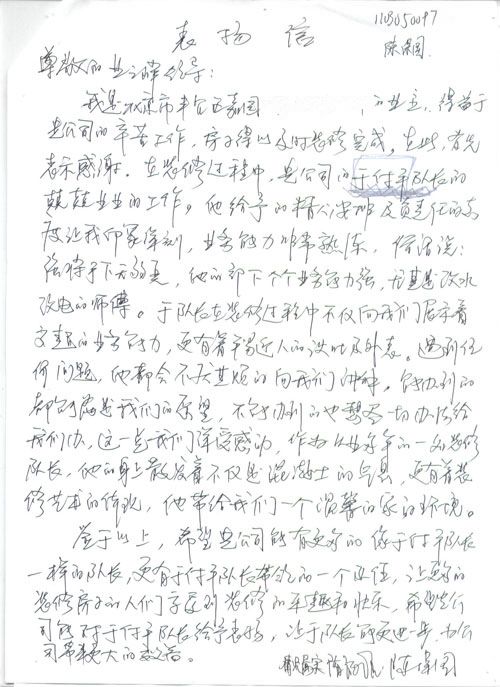 1103050097
表扬信
陈保国
尊敬的业之峰领导:
我是北京市丰台区嘉园 的业主,得益于
贵公司的辛苦工作,房子得以及时装修完成。在此,首先
表示感谢。在装修过程中,贵公司的于付军队长的
兢兢业业的工作。他给予的精心安排及负责任的态
度让我印象深刻,业务能力非常熟练,俗话说:
强将手下无弱兵,他的部下个个业务能力强,尤其是改水
改电的师傅。于队长在装修过程中不仅向我们展示着
的业务能力,更有着平易近人的谈吐及外表。遇到任
何问题,他都会不厌其烦的向我们讲解,能办到的
都会满足我们的愿望,不能办到的也想尽一切办法给
我们办,这一点我们深受感动,作为从业多年的一名装修
队长,他的身上散发着不仅是混凝土的气息,更有着装
修艺术的体现,他带给我们一个温馨的家的环境。
鉴于以上,希望贵公司能有更多的像于付军队长
一样的队长,更有于付军队长带领的一个团队,让更多的
装修房子的人们享受到装修的乐趣和快乐,希望贵公
司能对于付军队长给予表扬,让于队长能更进一步,为公
司带来更大的效益。
陈保国